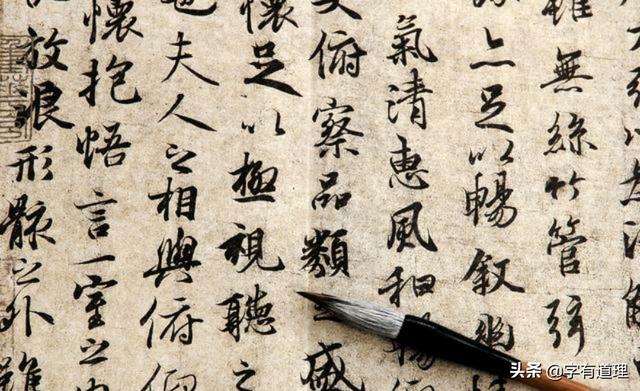 雖無絲竹管弦
亦足以暢敘幽
氣清惠風和暢
大俯察品類之盛
懷足以極視聽之
也夫人之相與俯仰
懷抱悟言一室之內
放浪形骸之外雖
头条 @字有道理